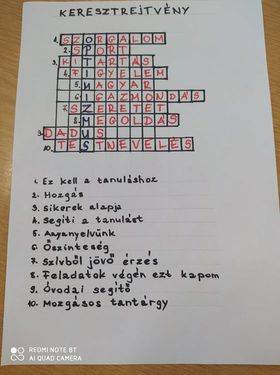 KERESZTREJTVÉNY
1. SZORGALOM
2. SPORT
3. KITARTÁS
4. FIGYELEM
5. MAGYAR
6. IGAZMONDÁS
7. SZERETET
8. MEGOLDÁS
9. DADUS
10. TESTNEVELÉS
1. Ez kell a tanuláshoz
2. Mozgás
3. Sikerek alapja
4. Segíti a tanulást
5. Anyanyelvünk
6. Őszinteség
7. Szívből jövő érzés
8. Feladatok végén ezt kapom
9. Óvodai segítő
10. Mozgásos tantárgy
REDMI NOTE 8T
AI QUAD CAMERA